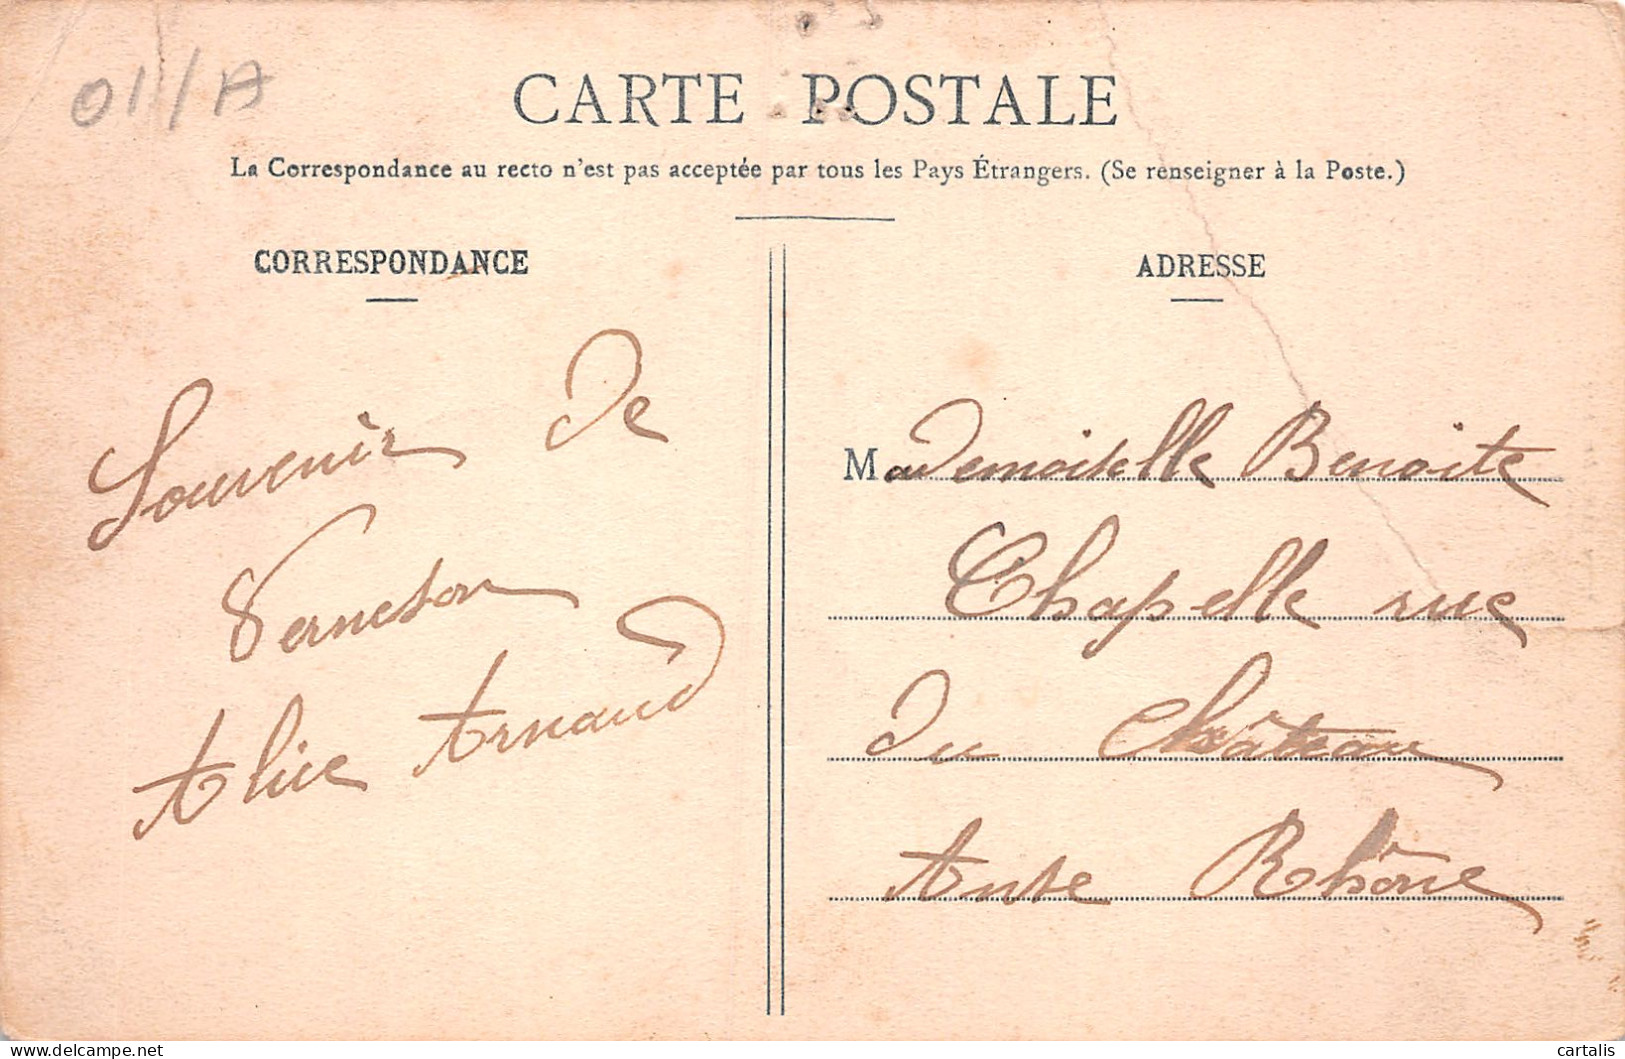 01/A
CARTE POSTALE
La Correspondance au recto n'est pas acceptée par tous les Pays Étrangers. (Se renseigner à la Poste.)
CORRESPONDANCE
Souvenir de
Verneson
Alice Arnaud
ADRESSE
Mademoiselle Benoite
Chapelle rue
du Château
Anse Rhône
cartalis